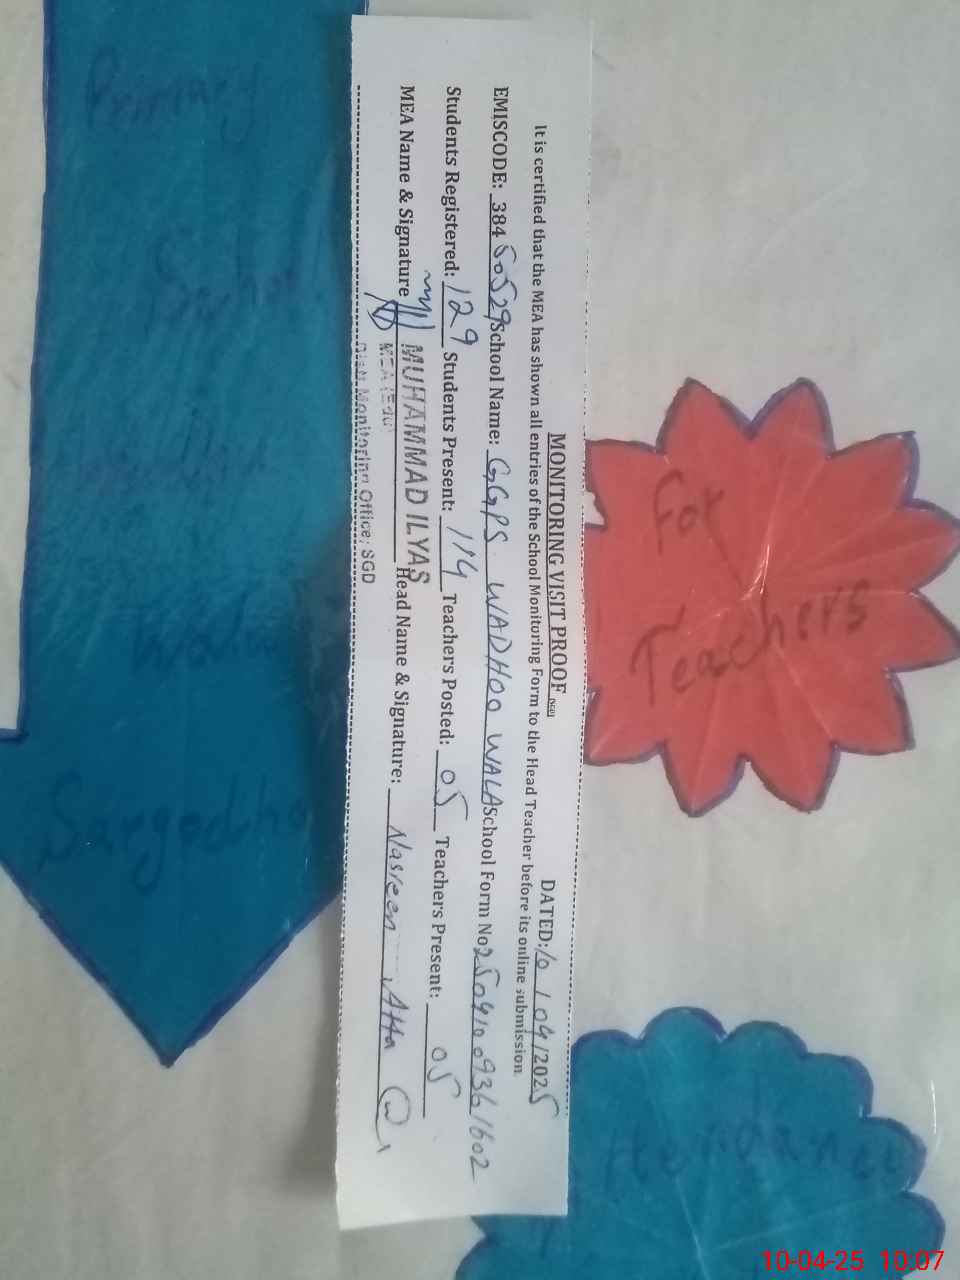 MONITORING VISIT PROOF DATED: 10/04/2025
It is certified that the MEA has shown all entries of the School Monitoring Form to the Head Teacher before its online submission.
EMISCODE: 38450529 School Name: GGPS WADHOO WALA School Form No 25041009361602
Students Registered: 129 Students Present: 114 Teachers Posted: 05 Teachers Present: 05
MEA Name & Signature MUHAMMAD ILYAS Head Name & Signature: Nasreen Atta
MEA (Edu)
Monitoring Office: SGD
For
Teachers
Primary
Sargodha
10-04-25 10:07